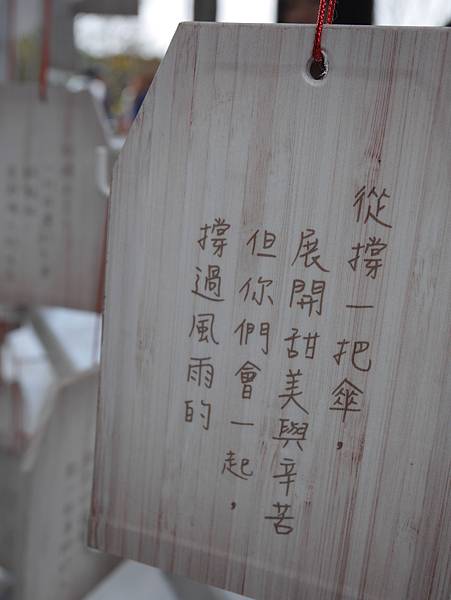 從撐一把傘，
展開甜美與辛苦
但你們會一起，
撐過風雨的